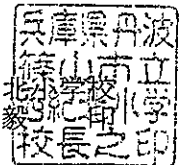 兵庫県丹波
篠山市立
北小学校
毅 印
校長之印